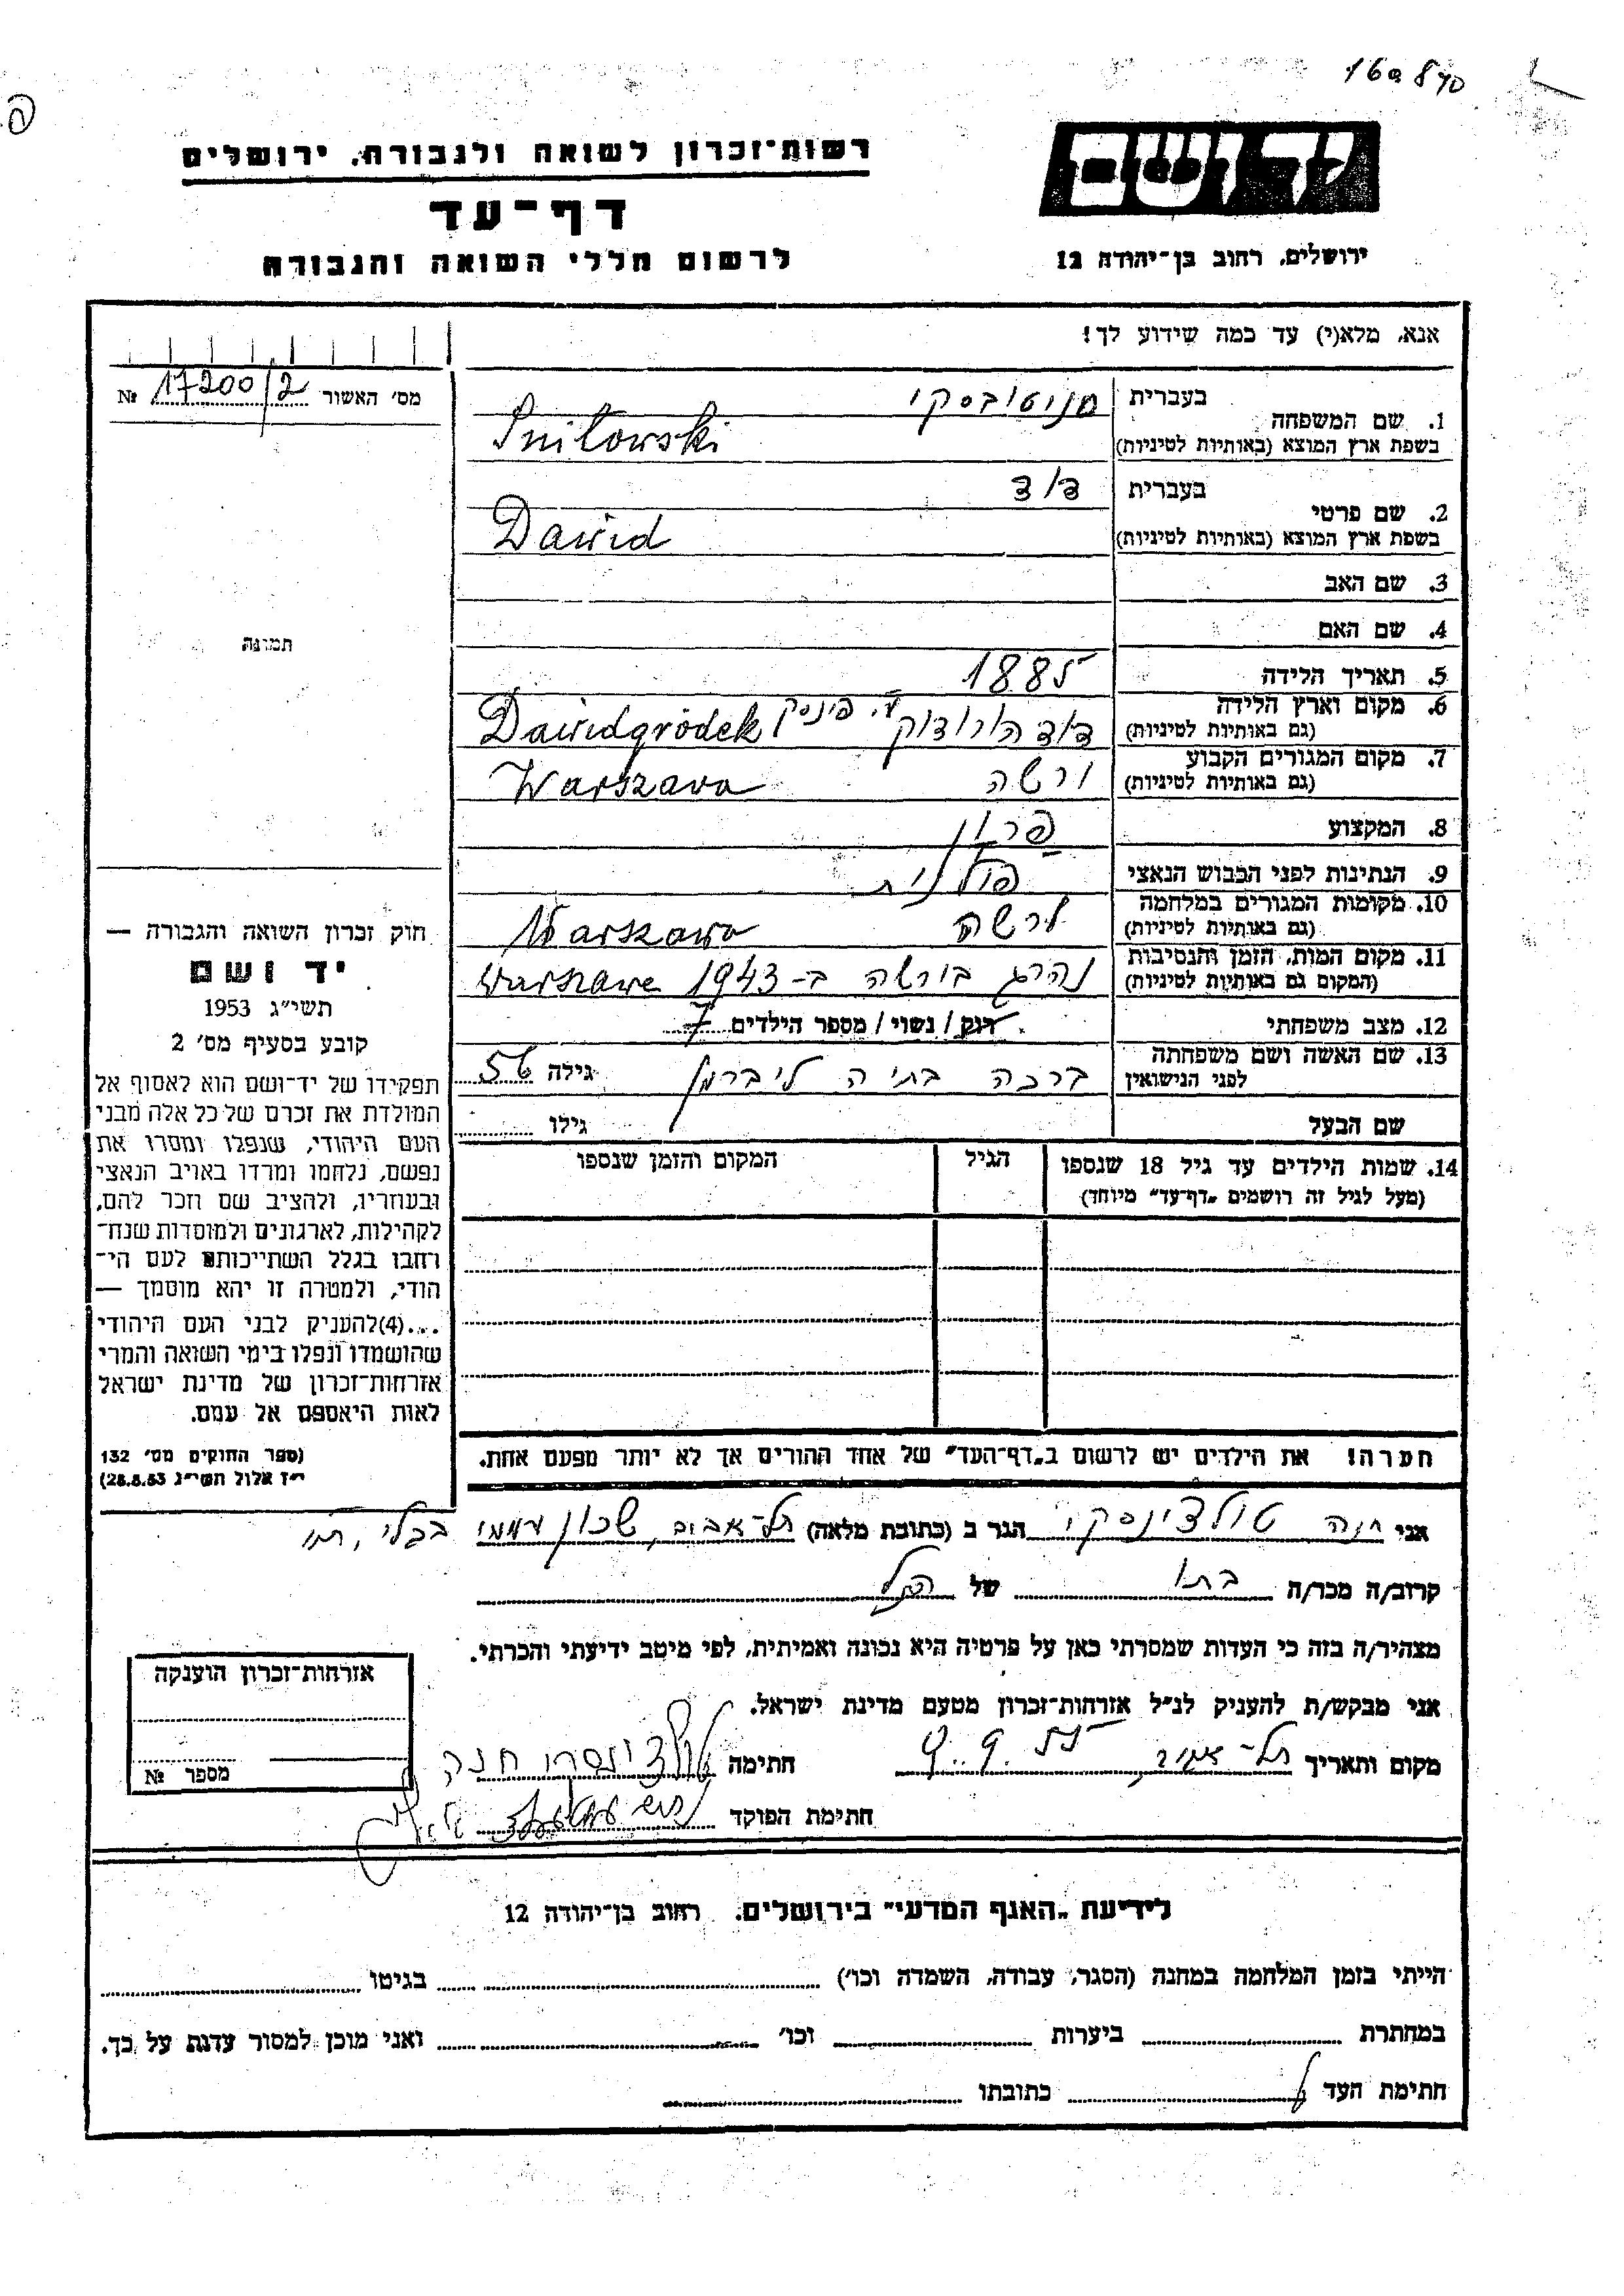 160870
רשות־זכרון לשואה ולגבורה, ירושלים
יד ושם
דף־עד
לרשום חללי השואה והגבורה
ירושלים, רחוב בן־יהודה 12
אנא, מלא(י) עד כמה שידוע לך!
מס׳ האשור 17200/2 №
תמונה
1. שם המשפחה
בעברית שניטובסקי
בשפת ארץ המוצא (באותיות לטיניות) Snitowski
2. שם פרטי
בעברית דוד
בשפת ארץ המוצא (באותיות לטיניות) Dawid
3. שם האב
4. שם האם
5. תאריך הלידה 1885
6. מקום וארץ הלידה
(גם באותיות לטיניות) דוד הורודוק ע. פינסק Dawidgródek
7. מקום המגורים הקבוע
(גם באותיות לטיניות) ורשה Warszawa
8. המקצוע
9. הנתינות לפני הכבוש הנאצי פולנית
10. מקומות המגורים במלחמה
(גם באותיות לטיניות) ורשה Warszawa
11. מקום המות, הזמן והנסיבות
(המקום גם באותיות לטיניות) נהרג בורשה ב-1943 Warszawa
12. מצב משפחתי רוק / נשוי / מספר הילדים 7
13. שם האשה ושם משפחתה
לפני הנישואין ברכה בתיה ליברמן גילה 56
שם הבעל גילו
14. שמות הילדים עד גיל 18 שנספו הגיל המקום והזמן שנספו
(מעל לגיל זה רושמים „דף־עד״ מיוחד)
הערה! את הילדים יש לרשום ב„דף־העד״ של אחד ההורים אך לא יותר מפעם אחת.
חוק זכרון השואה והגבורה —
יד ושם
תשי״ג 1953
קובע בסעיף מס׳ 2
תפקידו של יד־ושם הוא לאסוף אל
המולדת את זכרם של כל אלה מבני
העם היהודי, שנפלו ומסרו את
נפשם, נלחמו ומרדו באויב הנאצי
ובעוזריו, ולהציב שם וזכר להם,
לקהילות, לארגונים ולמוסדות שנח־
רחבו בגלל השתייכותם לעם הי־
הודי, ולמטרה זו יהא מוסמך —
...(4)להעניק לבני העם היהודי
שהושמדו ונפלו בימי השואה והמרי
אזרחות־זכרון של מדינת ישראל
לאות היאספם אל עמם.
(ספר החוקים מס׳ 132
י״ז אלול תשי״ג 28.8.53)
אני חנה טולצינסקי הגר ב (כתובת מלאה) תל-אביב, שכון עממי בבלי,
קרוב/ה מכר/ה בתו של הנ״ל
מצהיר/ה בזה כי העדות שמסרתי כאן על פרטיה היא נכונה ואמיתית, לפי מיטב ידיעתי והכרתי.
אני מבקש/ת להעניק לנ״ל אזרחות־זכרון מטעם מדינת ישראל.
מקום ותאריך תל-אביב, 9.9.55 חתימה טולצינסקי חנה
חתימת הפוקד
אזרחות־זכרון הוענקה
מספר №
לידיעת „האגף המדעי״ בירושלים, רחוב בן־יהודה 12
הייתי בזמן המלחמה במחנה (הסגר, עבודה, השמדה וכו׳) בגיטו
במחתרת ביערות וכו׳ ואני מוכן למסור עדות על כך.
חתימת העד כתובתו